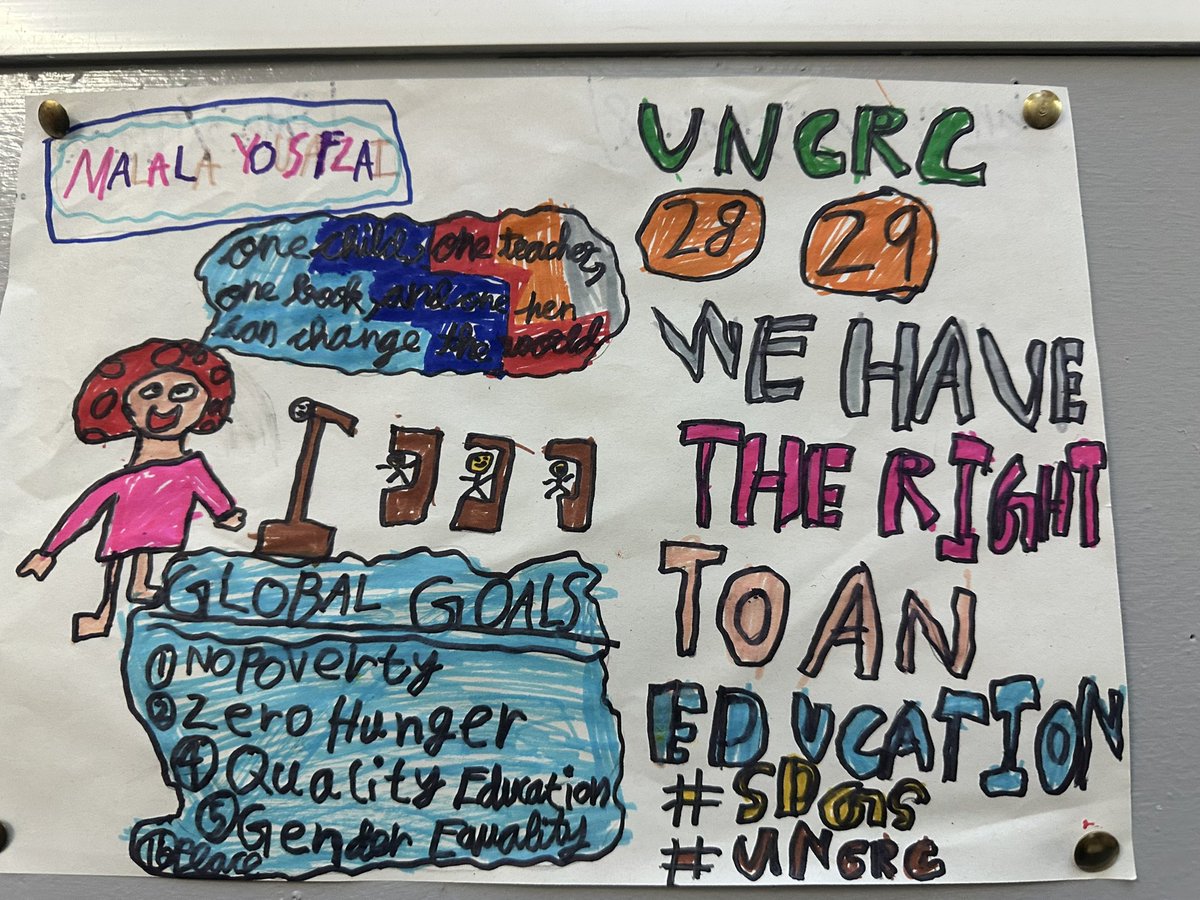 MALALA YOSFZAI
one child, one teacher,
one book, and one pen
can change the world
GLOBAL GOALS
① No Poverty
② Zero Hunger
④ Quality Education
⑤ Gender Equality
⑯ Peace
UNCRC
28 29
WE HAVE
THE RIGHT
TO AN
EDUCATION
#SDGs
#UNCRC